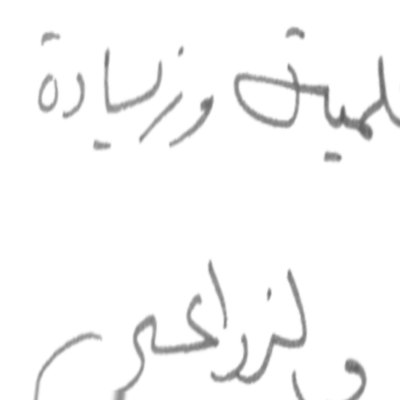 لمية وزيادة
والزراعي